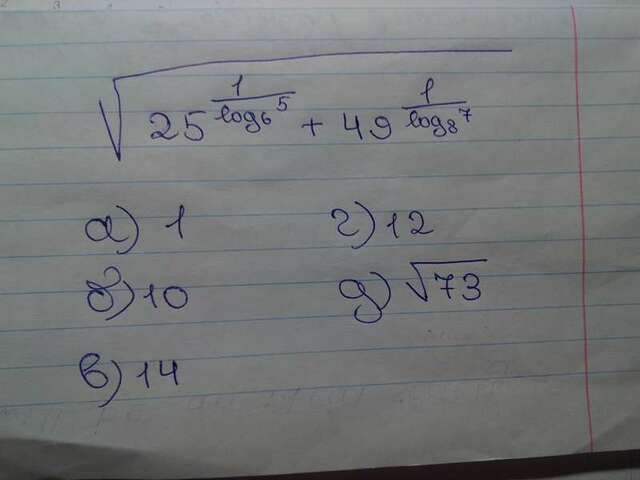 √(25^(1/log₆5) + 49^(1/log₈7))
а) 1 г) 12
б) 10 д) √73
в) 14